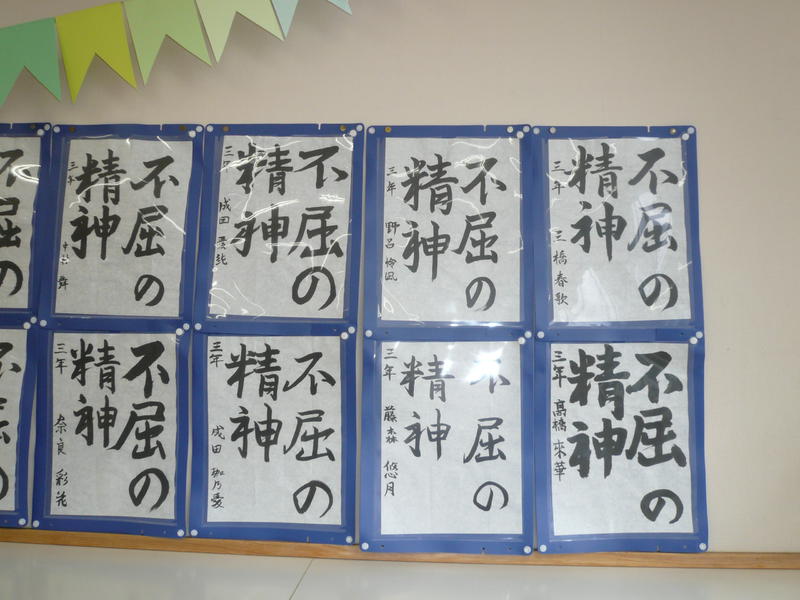 不屈の
精神
三年 三橋春歌
不屈の
精神
三年 野呂怜凪
不屈の
精神
成田
不屈の
精神
三年 舞
不屈の
不屈の
精神
三年 高橋來華
不屈の
精神
三年 藤森悠月
不屈の
精神
三年 成田
不屈の
精神
三年 奈良彩花